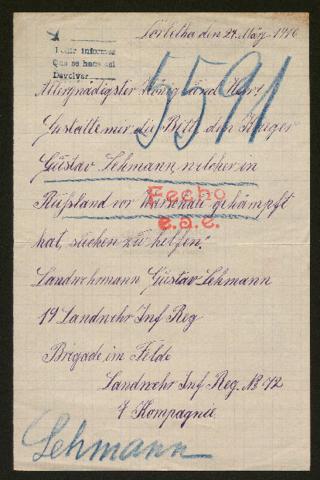 Corbetha den 24. März 1916
Pedir informes
Que se hace así
Devolver
5591
Allergnädigster König und Herr
Gestatte mir die Bitte den Krieger
Gustav Lehmann welcher in
Rußland vor Warschau gekämpft
Fecho
e.s.e.
hat, suchen zu helfen.
Landwehrmann Gustav Lehmann
19 Landwehr Inf Reg
Brigade im Felde
Landwehr Inf Reg. No 72
7 Kompagnie
Lehmann